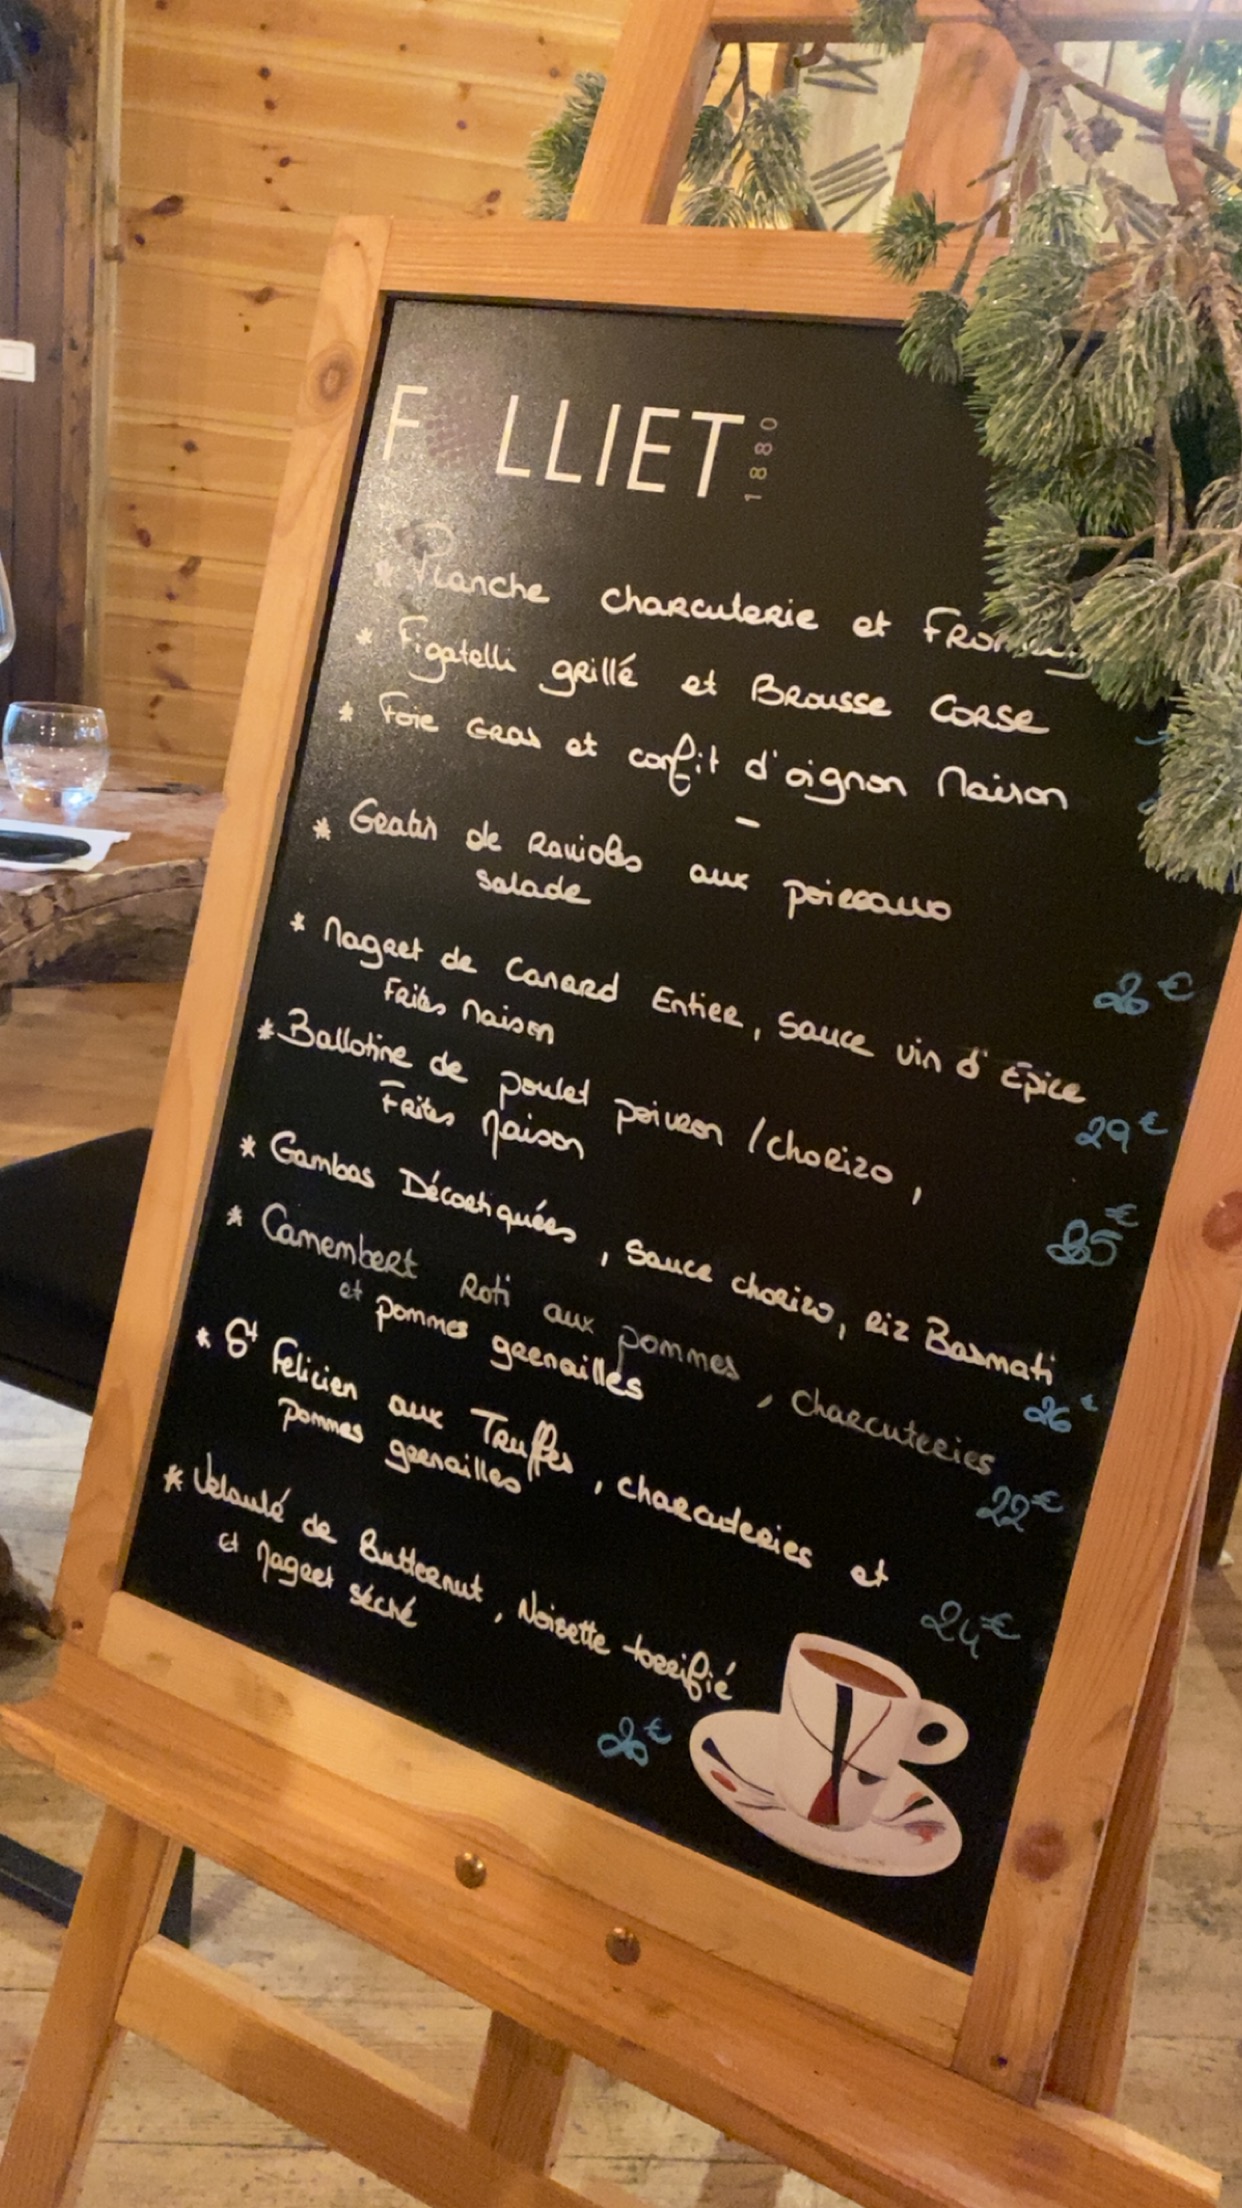 F LLIET 1880
* Planche charcuterie et
* Figatelli grillé et Brousse Corse
* Foie Gras et confit d'oignon Maison
-
* Gratin de Ravioles aux poireaux
salade
26€
* Magret de Canard Entier, sauce vin d'Épice
Frites Maison
29€
* Ballotine de poulet poivron / chorizo,
Frites Maison
25€
* Gambas Décortiquées, sauce chorizo, Riz Basmati
26€
* Camembert Roti aux pommes, charcuteries
et pommes grenailles
22€
* St Felicien aux Truffes, charcuteries et
pommes grenailles
24€
* Velouté de Butternut, Noisette torrifié
et Magret séché